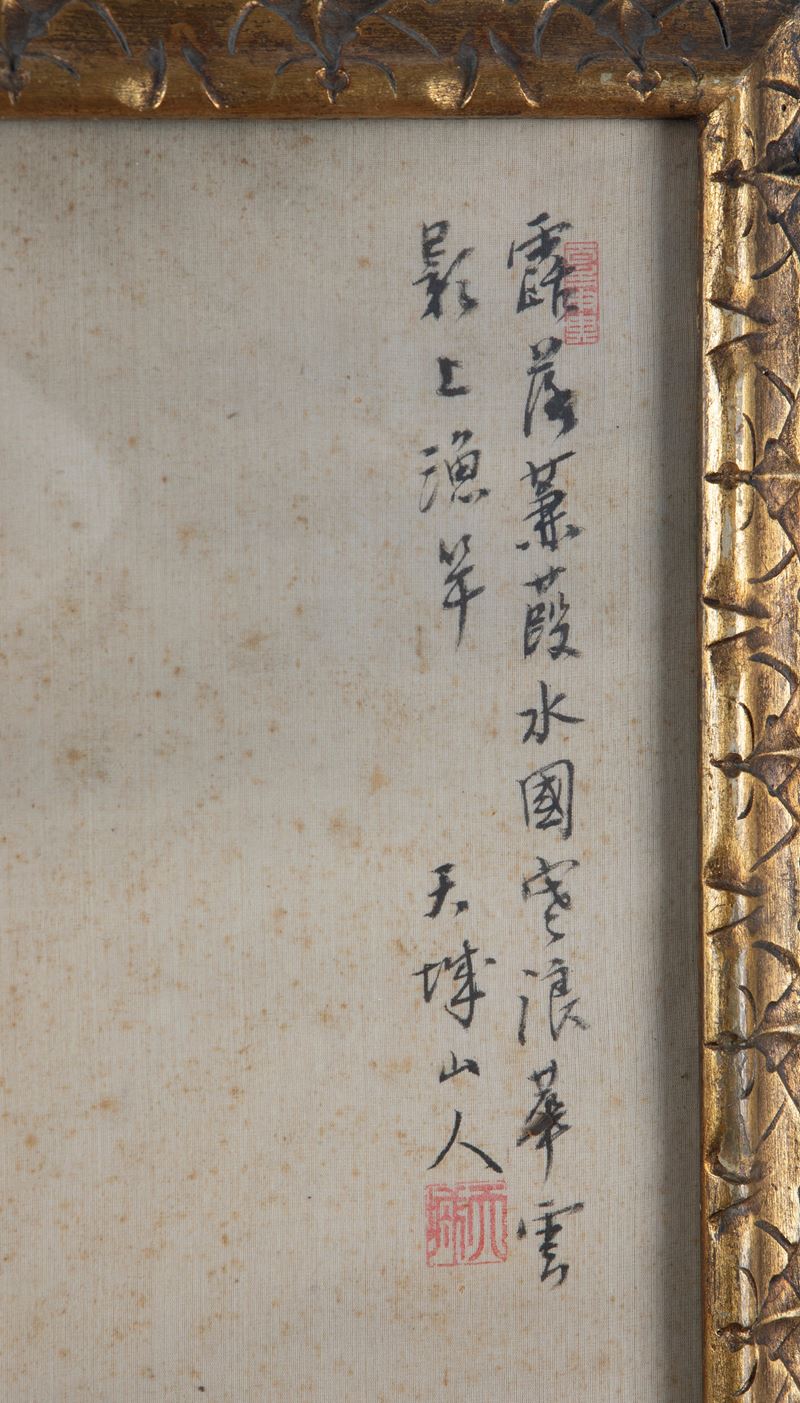 露落蒹葭水國寒浪華雲
影上漁竿 天城山人
天城